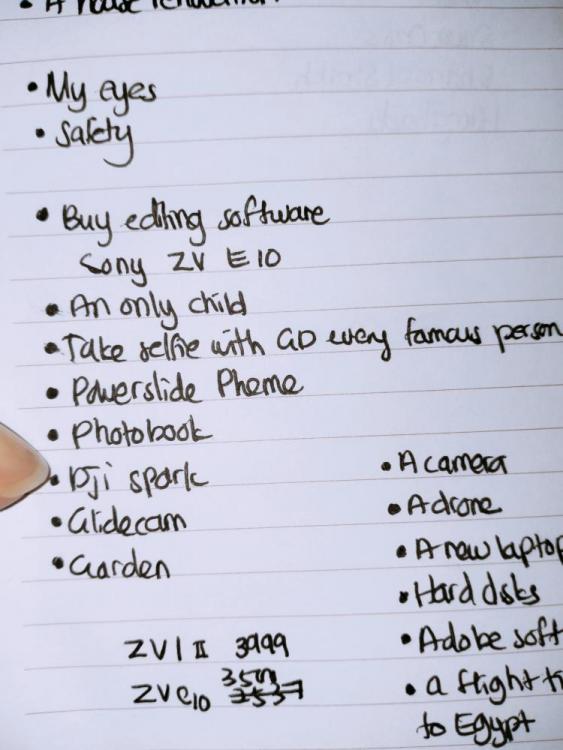 • A house renovation
• My eyes
• Safety
• Buy editing software
Sony ZV E10
• An only child
• Take selfie with GD every famous person
• Powerslide Pheme
• Photobook
• Dji spark
• Glidecam
• Garden
ZV1 II 3999
ZVe10
• A camera
• A drone
• A new laptop
• Hard disks
• Adobe soft
• a flight t
to Egypt